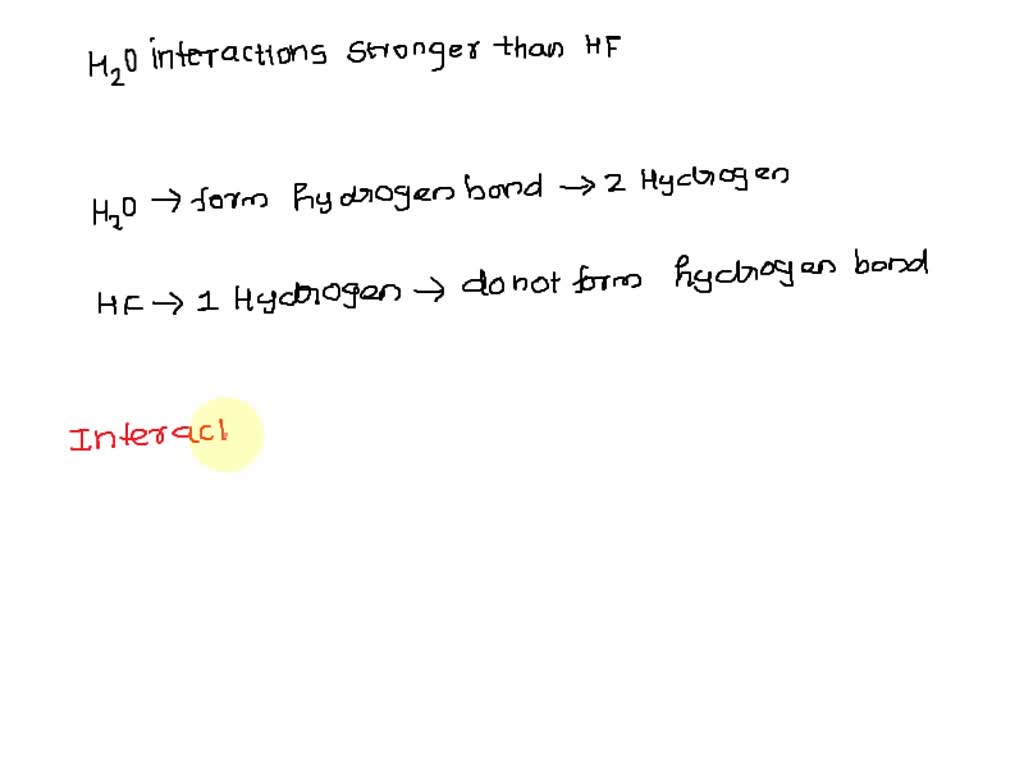 H₂O interactions stronger than HF
H₂O → form hydrogen bond → 2 Hydrogen
HF → 1 Hydrogen → do not form hydrogen bond
Interacl